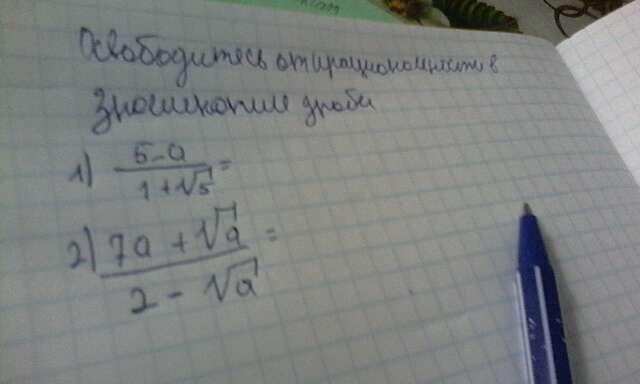 Освободитесь от иррациональности в
знаменателе дроби
1) (5-a)/(1+√5) =
2) (7a+√a)/(2-√a) =